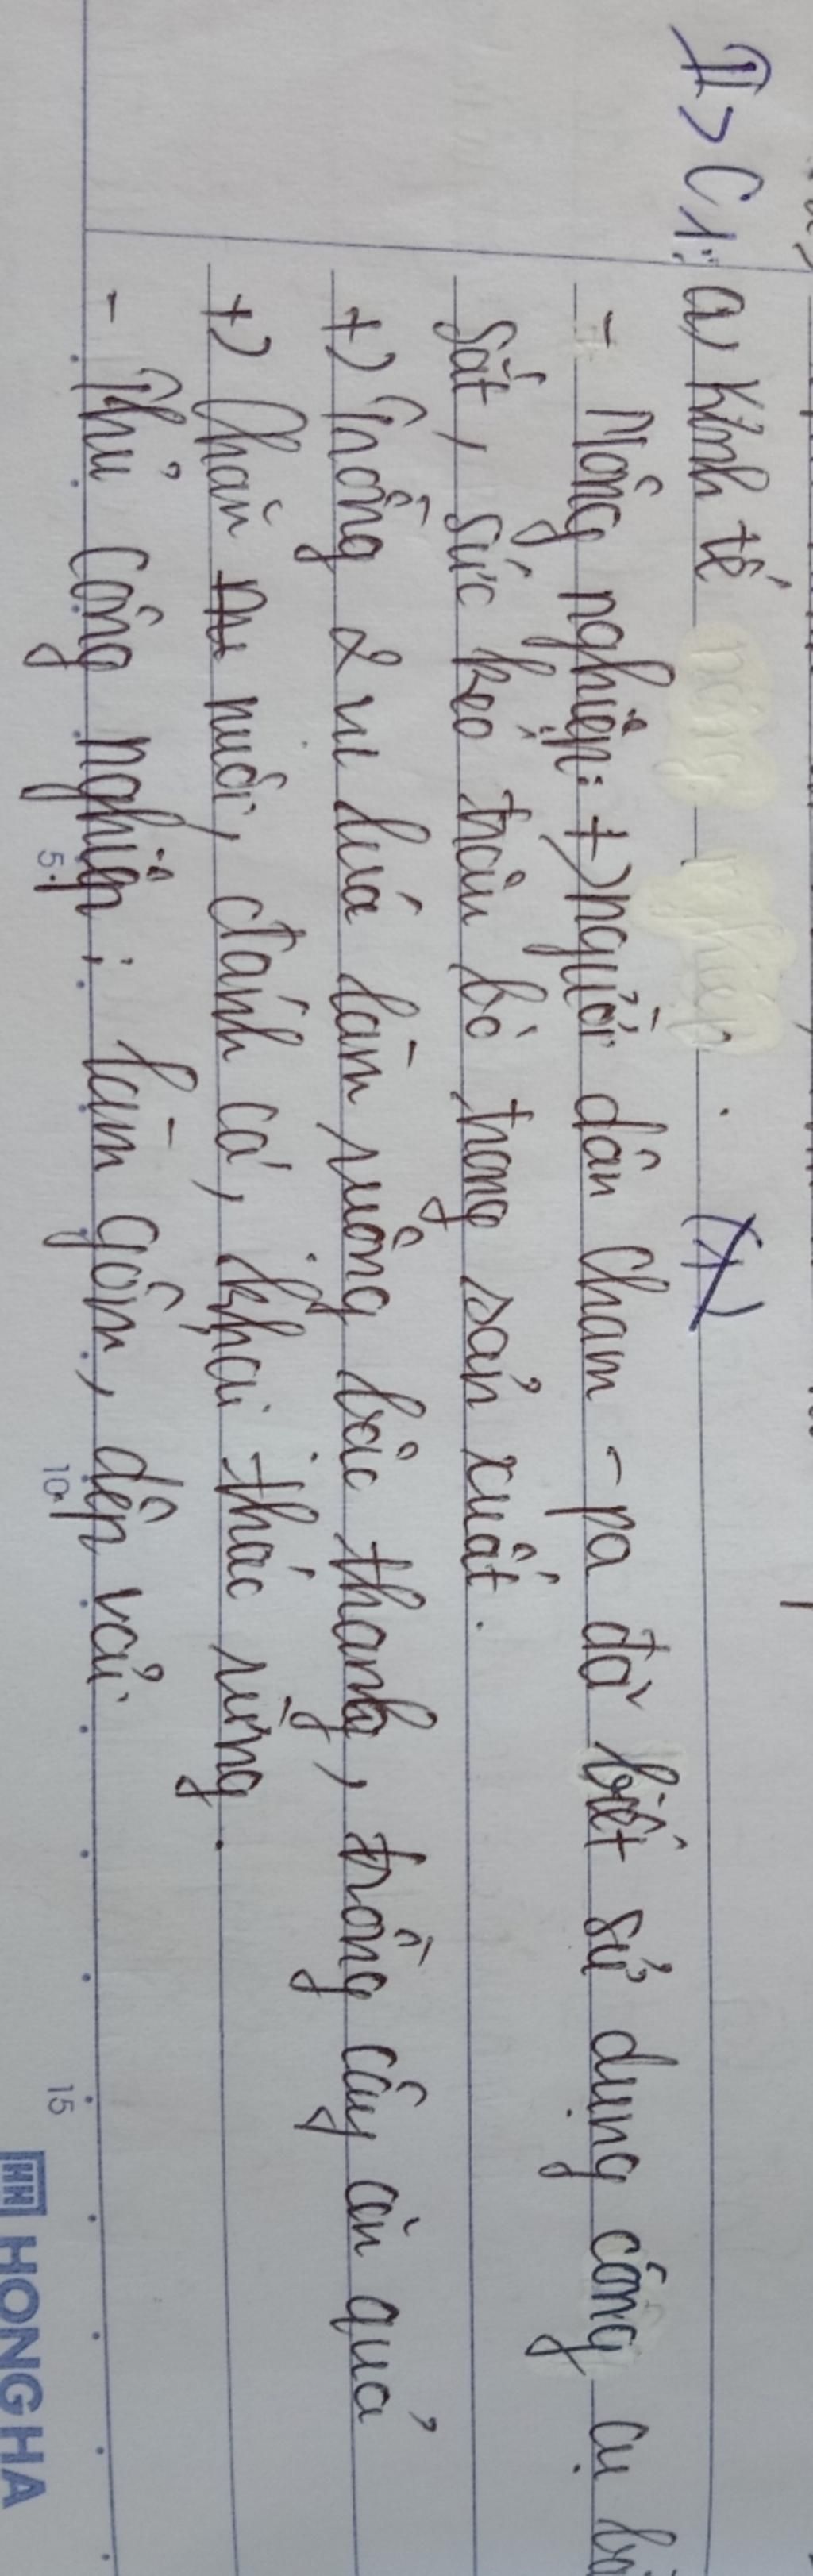 II> C1: a) Kinh tế nông nghiệp. (X)
- Nông nghiệp: +) người dân Cham-pa đã biết sử dụng công cụ
sắt, sức kéo trâu bò trong sản xuất.
+) Trồng 2 vụ lúa làm ruộng bậc thang, trồng cây ăn quả
+) Chăn nuôi, đánh cá, khai thác rừng.
- Thủ công nghiệp: làm gốm, dệp vải
5
10
15
HH HONG HA